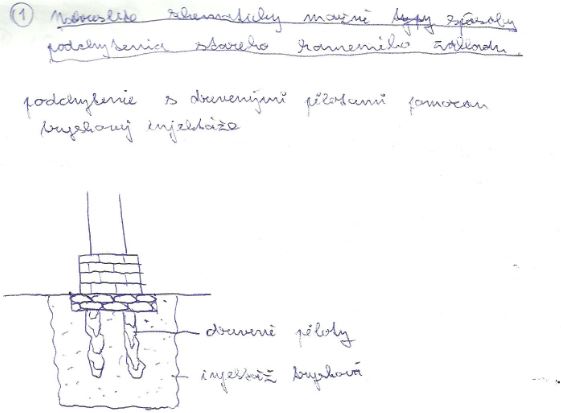 ① Nakreslite schematicky možné typy spôsoby
podchytenia starého kamenného základu.
podchytenie s drevenými pilotami pomocou
tryskovej injektáže
drevené pilóty
injektáž trysková